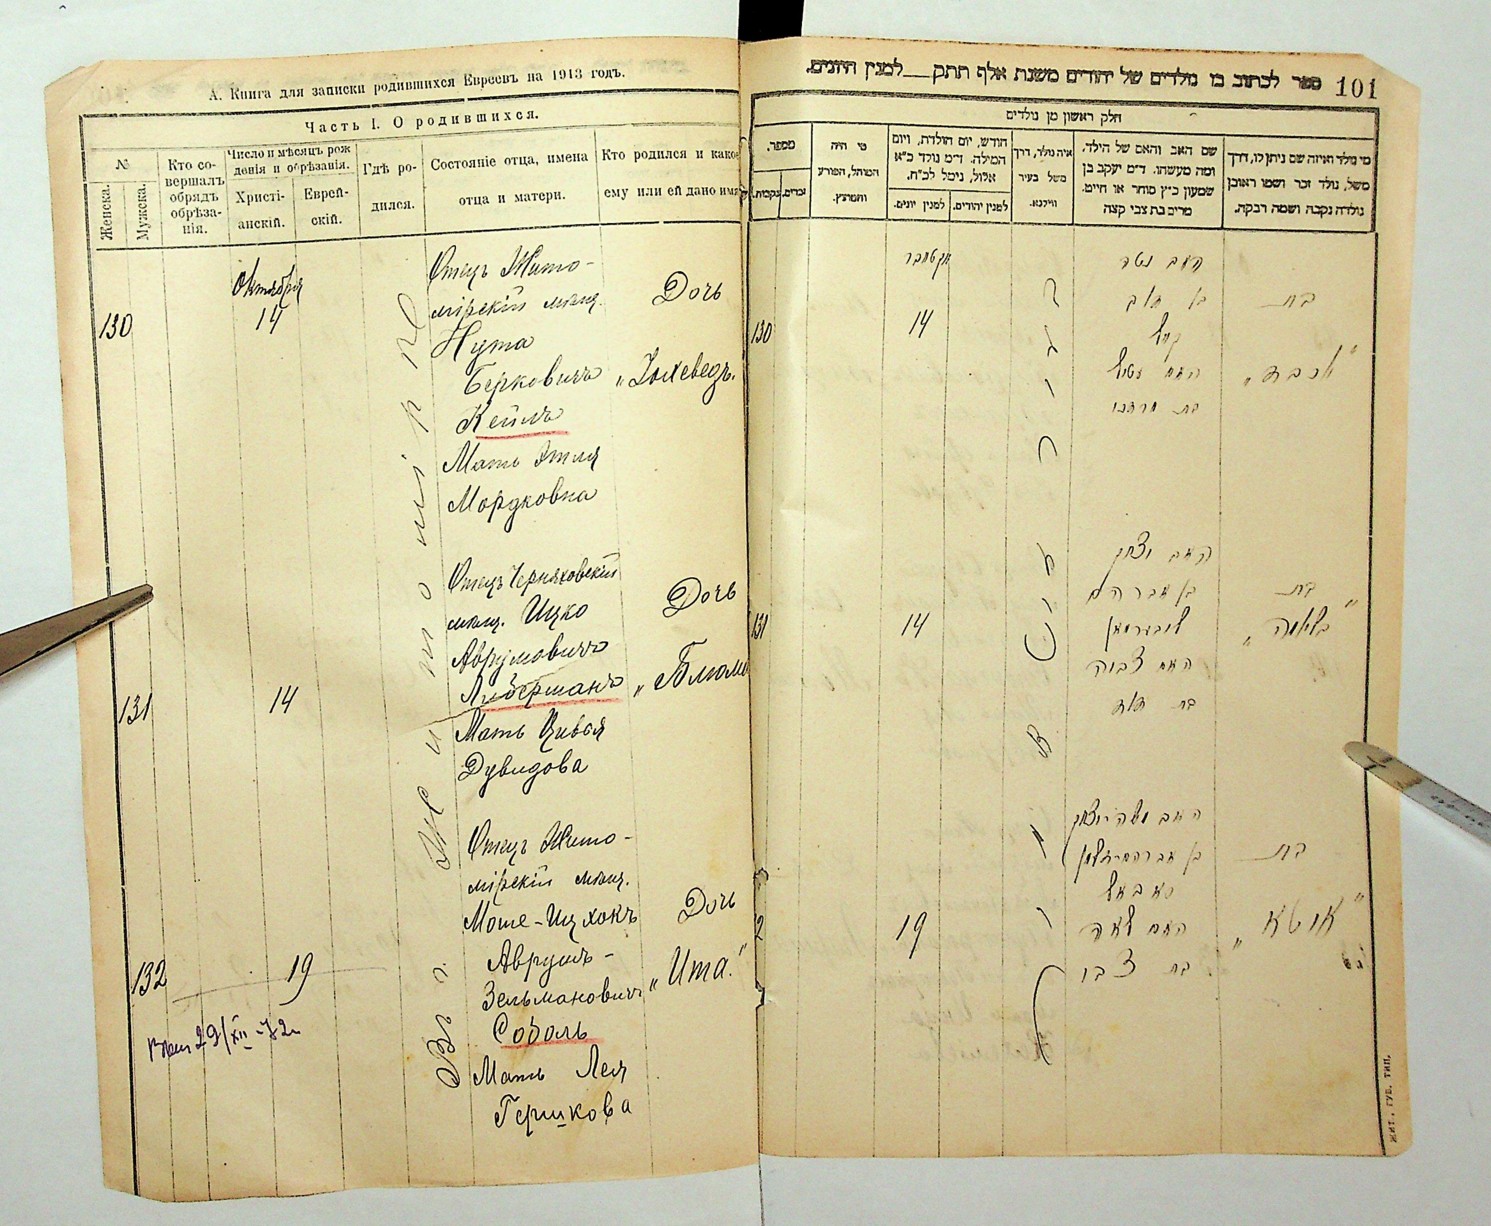 А. Книга для записки родившихся Евреевъ на 1913 годъ.
Часть I. О родившихся.
№
Женска.
Мужска.
Кто со-
вершалъ
обрядъ
обрѣза-
нія.
Число и мѣсяцъ рож
денія и обрѣзанія.
Христі-
анскій.
Еврей-
скій.
Гдѣ ро-
дился.
Состояніе отца, имена
отца и матери.
Кто родился и какое
ему или ей дано имя
Въ г. Житомірѣ
130
Октября
14
Отецъ Жито-
мірскій мѣщ.
Нута
Берковичъ
Кеймъ
Мать Этля
Мордковна
Дочь
„Іохеведъ.
131
14
Отецъ Черняховскій
мѣщ. Ицко
Аврумовичъ
Либерманъ
Мать Цивья
Дувидова
Дочь
„Блюма
132
19
Отецъ Жито-
мірскій мѣщ.
Моше-Ицхокъ
Аврумъ-
Зельмановичъ
Соболь
Мать Лея
Гершкова
Дочь
„Ита."
29/XII-72г
101
ספר לכתוב בו נולדים של יהודים משנת אלף תתק__למנין היונים.
חלק ראשון מן נולדים
מספר.
זכרים.
נקבות.
מי היה
המוהל, הפורע
והמוצץ.
חודש, יום הולדת, ויום
המילה. ד״מ נולד כ״א
אלול, נימל לכ״ח.
למנין יונים.
למנין יהודים.
איה נולד, דרך
משל בעיר
ווילנא.
שם האב והאם של הילד,
ומה מעשהו. ד״מ יעקב בן
שמעון כ״ץ סוחר או חייט.
מרים בת צבי קצה
מי נולד ואיזה שם ניתן לו, דרך
משל, נולד זכר ושמו ראובן
נולדה נקבה ושמה רבקה.
130
אקטאבר
14
האב נטה
בת
131
14
האב יצחק
בן אברהם
ליבערמאן
האם צביה
בת דוד
בת
„בלומה"
2
19
האב משה יצחק
סאבאל
האם לאה
בת צבי
בת
„איטא"
ЖИТ., ГУБ. ТИП.